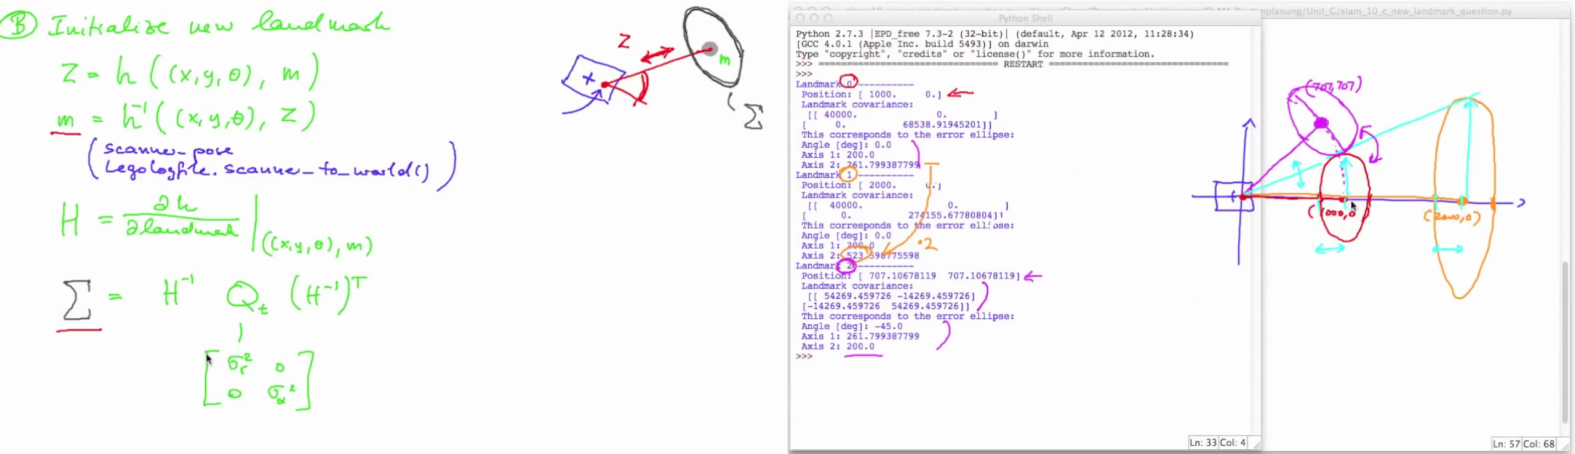 B Initialize new landmark
Z = h ((x,y,θ), m)
m = h⁻¹ ((x,y,θ), Z)
(scanner_pose
Legologfile.scanner_to_world())
H = ∂h / ∂landmark |((x,y,θ), m)
Σ = H⁻¹ Qt (H⁻¹)ᵀ
[σr² 0
0 σα²]
Z
m
Σ
Python Shell
Python 2.7.3 |EPD_free 7.3-2 (32-bit)| (default, Apr 12 2012, 11:28:34)
[GCC 4.0.1 (Apple Inc. build 5493)] on darwin
Type "copyright", "credits" or "license()" for more information.
>>> ================================ RESTART ================================
>>>
Landmark 0 ----------
Position: [ 1000. 0.]
Landmark covariance:
[[ 40000. 0. ]
[ 0. 68538.91945201]]
This corresponds to the error ellipse:
Angle [deg]: 0.0
Axis 1: 200.0
Axis 2: 261.799387799
Landmark 1 ----------
Position: [ 2000. 0.]
Landmark covariance:
[[ 40000. 0. ]
[ 0. 274155.67780804]]
This corresponds to the error ellipse:
Angle [deg]: 0.0
Axis 1: 200.0
Axis 2: 523.598775598
·2
Landmark 2 ----------
Position: [ 707.10678119 707.10678119]
Landmark covariance:
[[ 54269.459726 -14269.459726]
[-14269.459726 54269.459726]]
This corresponds to the error ellipse:
Angle [deg]: -45.0
Axis 1: 261.799387799
Axis 2: 200.0
>>>
Ln: 33 Col: 4
planung/Unit_G/slam_10_c_new_landmark_question.py
(707,707)
(1000,0)
(2000,0)
Ln: 57 Col: 68